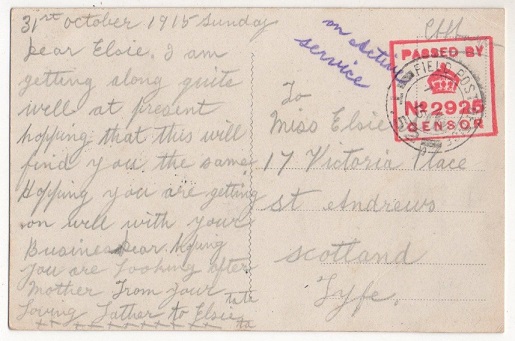 31st october 1915 Sunday
Dear Elsie. I am
getting along quite
well at present
hopping that this will
find you the same
Hopping you are getting
on well with your
Business Dear
you are Looking after
Mother From your
Loving Father to Elsie
on Active
service
PASSED BY
No 2925
CENSOR
FIELD POST
To
Miss Elsie
17 Victoria Place
st Andrews
scotland
Fyfe.